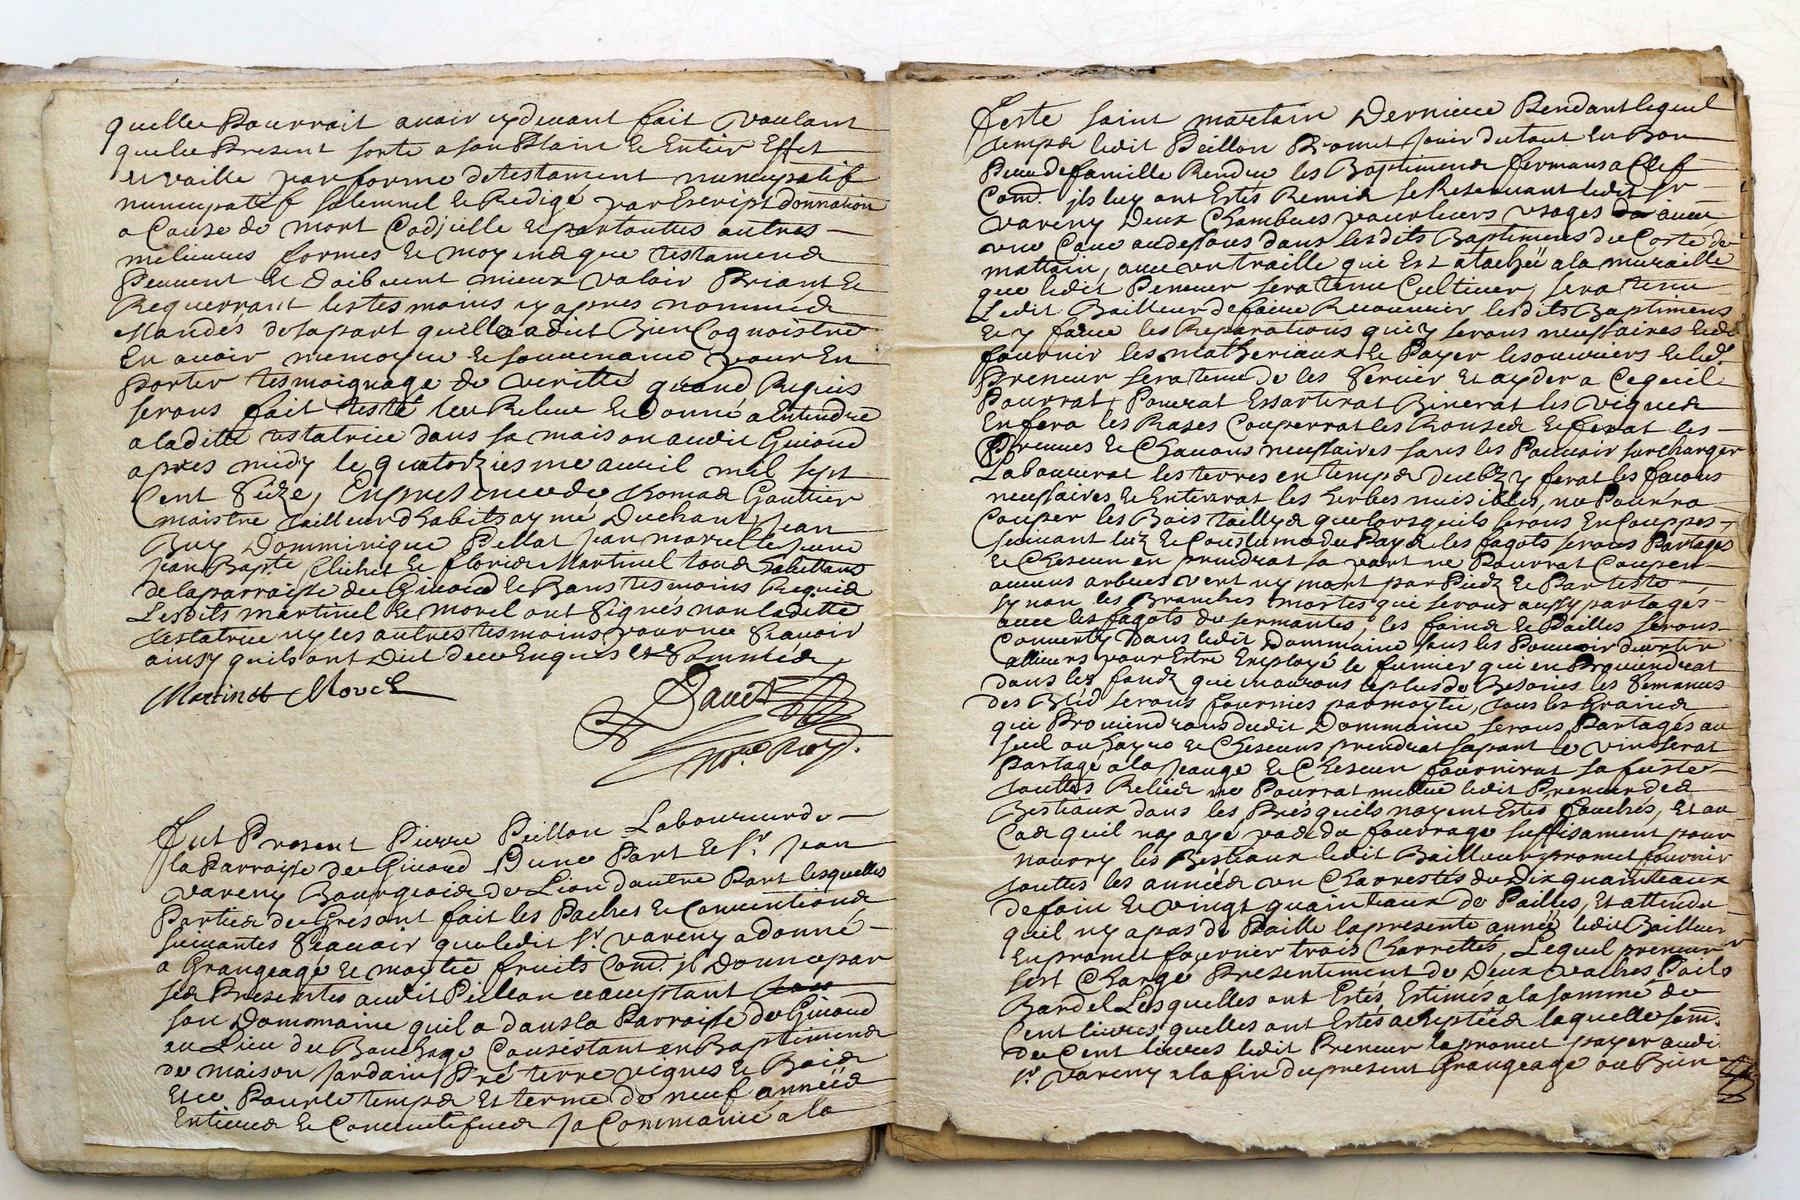 quelle Pourrait avoir cydevant fait Voulant
quele Present sorte a son Plain Et Entier Effet
et vaille par forme de testament nuncupatif
nuncupatif solemnel Et Redigé par Escript donnation
a Cause de mort Codjcille Et partouttes autres
melieures formes Et moyens que testamens
Peuvent Et doibvent mieux valoir Priant Et
Requerrant les tesmoins cy apres nommés
Mandés de sa part quelle a dict Bien Cognoistre
En avoir memoyre Et souvenance pour En
Porter tesmoignage de veritté quand Requis
serons fait testé leu Releu Et Donné a Entendre
a laditte testatrice dans sa maison audit Givord
apres midy le quatorziesme avril mil sept
Cent Seize, En presence de Thomas Gauttier
maistre tailleur d'habits aymé Duchant, Jean
Buy Domminique Pellat Jean morel le Jeune
Jean Bapte Clichet Et floris Martinet tous habittans
de la parroisse de Givord Et Bans tesmoins Requis
Lesdits martinet Et morel ont Signés non laditte
testatrice ny les autres tesmoins pour ne Scavoir
ainsy quils ont Dict de ce Enquis Et Sommés
Martinet Morel
No.re Roy.
fut Present Pierre Peillon Laboureur de
la Parroisse de Givord D'une Part Et Sr. Jean
Vareny Bourgeois de Lion dautre Part lesquelles
Parties de Gres ont fait les Paches Et Conventions
suivantes Scavoir que ledit Sr. Vareny a donné
a Grangeage Et moytié fruits Com.e jl Donne par
ses Presentes audit Peillon acceptant
son Dommaine quil a dans la Parroisse de Givord
au Lieu du Bouchage Consistant en Baptimens
de maison Jardain Pré terre vignes Et Bois
Et ce Pour le temps Et terme de neuf années
Entieres Et Consecutifves Ja Commancé a la
feste saint martain Derniere Pendant lequel
temps ledit Peillon Promet Jouir du tout En Bon
Pere de famille Rendre les Baptimens fermans a Clef
Com.e jls luy ont Estés Remis se Reservant ledit Sr
Vareny Deux Chambres pour leurs usages avec
une Cave au dessous dans lesdits Baptimens du Costé de
mattain, avec un traille qui Est atachée a la muraille
que ledit Preneur sera tenu Cultiver, sera tenu
Ledit Bailleur de faire Recouvrir lesdits Baptimens
Et y faire les Reparations quy serons nessaires Et de
fournir les matheriaux Et Payer les ouvriers Et led.
Preneur sera tenu de les Servir Et ayder a Ce quil
Pourrat, Pouerat Essarterat Binerat les vignes
En fera les Rases Couperrat les Ronses Et ferat les
Prennes Et Chavons nessaires sans les Pouvoir surcharger
Labourerat les terres en temps deub y ferat les facons
nessaires Et Enterrat les herbes nuisibles, ne Pourra
Couper les Bois taillys que lorsquils serons En Couppes
suivant luz Et Coustume du Pays les fagots serons Partagés
Et Chescun en prendrat sa part ne Pourrat Couper
aucuns arbres vert ny mort par Piedz Et Par teste
sy non les Branches mortes qui serons aussy partagés
avec les fagots de sermantes, les foins Et Pailles serons
Convertis Dans ledit Dommaine sans les Pouvoir divertir
allieurs pour Estre Employé le fumier qui en Proviendrat
dans les fondz qui en aurons le plus de Besoins les Semances
des Bled serons fournies par moytié, tous les Grains
qui Proviendrons dudit Dommaine serons Partagés au
seul ou Et Chescuns prendrat sa part le vin serat
Partagé a la Jauge Et Chescun fournirat sa futte
touttes Reliés ne Pourrat mettre ledit Preneur des
Bestiaux dans les Prés quils nayent Estés fauchés, Et au
Cas quil ny aye pas du fourrage suffisament pour
nourry les Bestiaux ledit Bailleur promet fournir
touttes les années un Charrestés de Dix quaintaux
de foin Et vingt quaintaux de Pailles, Et attendu
quil ny a pas de Paille la presente année ledit Bailleur
En promet fournir trois Charrettes, Lequel preneur
sest Chargé Presentement de Deux vaches Poils
Bardel Lesquelles ont Estés Estimés a la somme de
Cent livres quelles ont Estés acceptées laquelle som.e
de Cent livres ledit Preneur la promet payer audi
Sr. Vareny a la fin du present Grangeage ou Bien